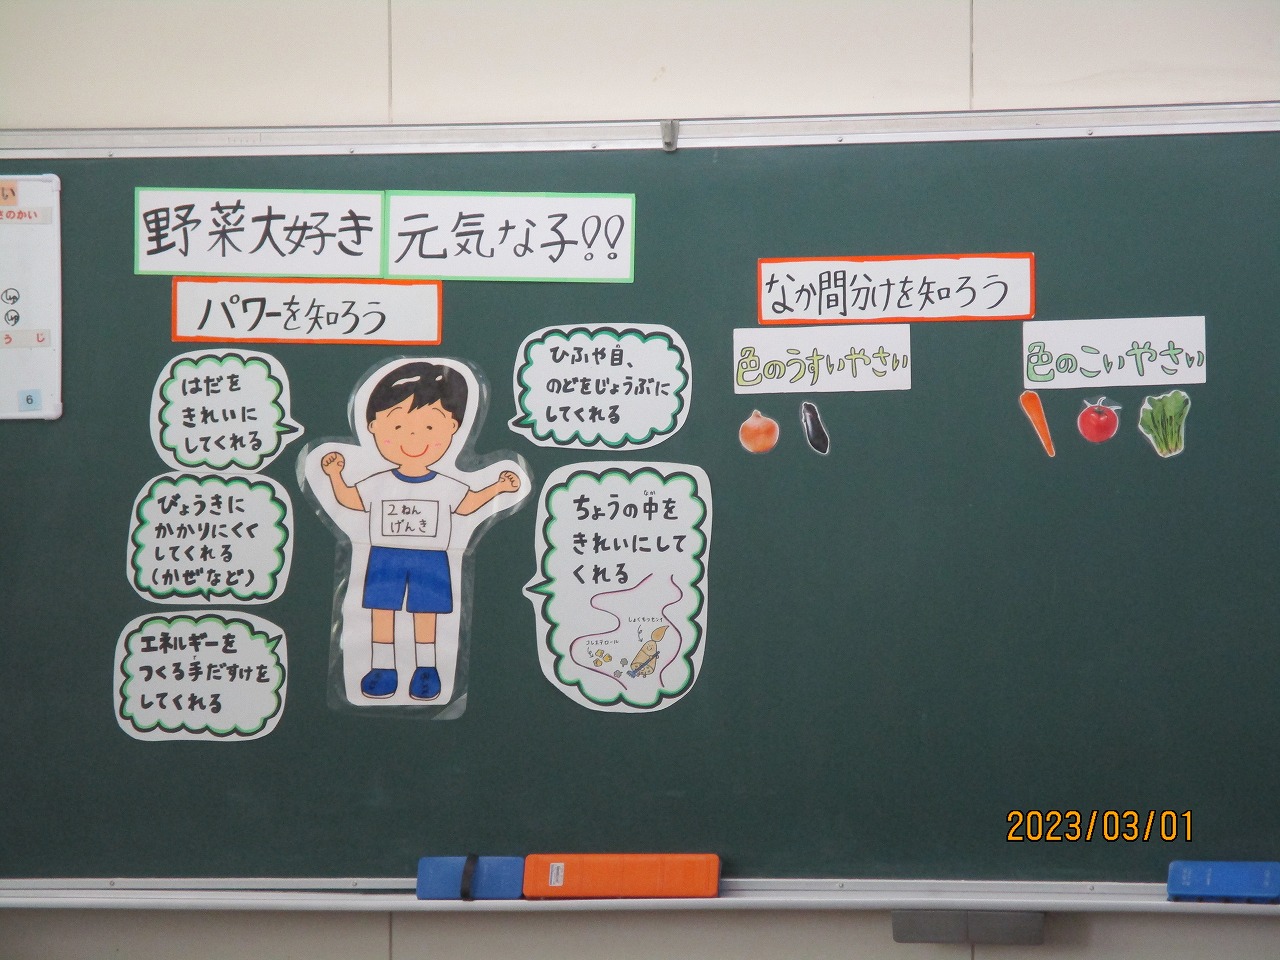 い
きのかい
う じ
6
野菜大好き 元気な子!!
パワーを知ろう
はだを
きれいに
してくれる
びょうきに
かかりにくく
してくれる
(かぜなど)
エネルギーを
つくる手だすけを
してくれる
2ねん
げんき
ひふや目、
のどをじょうぶに
してくれる
ちょうの中を
なか
きれいにして
くれる
しょくもつせんい
コレステロール
なか間分けを知ろう
色のうすいやさい
色のこいやさい
2023/03/01